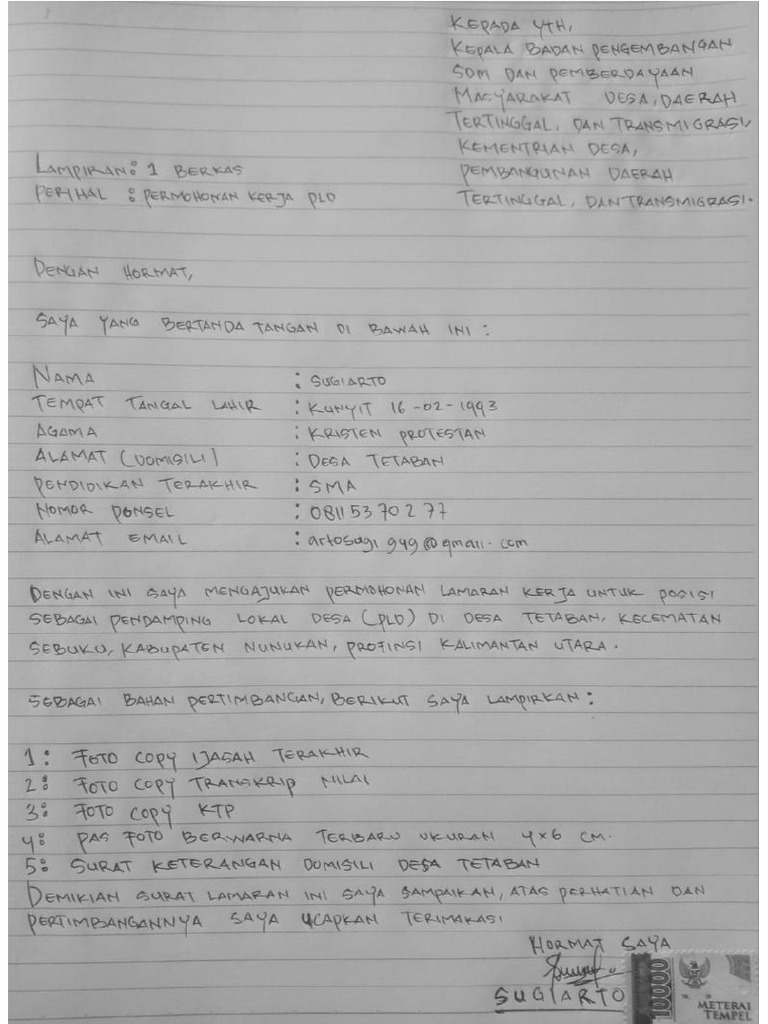 KEPADA YTH,
KEPALA BADAN PENGEMBANGAN
SDM DAN PEMBERDAYAAN
MASYARAKAT DESA, DAERAH
TERTINGGAL, DAN TRANSMIGRASI,
KEMENTRIAN DESA,
PEMBANGUNAN DAERAH
TERTINGGAL, DAN TRANSMIGRASI.
LAMPIRAN: 1 BERKAS
PERIHAL : PERMOHONAN KERJA PLD
DENGAN HORMAT,
SAYA YANG BERTANDA TANGAN DI BAWAH INI :
NAMA : SUGIARTO
TEMPAT TANGAL LAHIR : KUNYIT 16-02-1993
AGAMA : KRISTEN PROTESTAN
ALAMAT (DOMISILI) : DESA TETABAN
PENDIDIKAN TERAKHIR : SMA
NOMOR PONSEL : 0811 53 70 2 77
ALAMAT EMAIL : artosugi949@gmail.com
DENGAN INI SAYA MENGAJUKAN PERMOHONAN LAMARAN KERJA UNTUK POSISI
SEBAGAI PENDAMPING LOKAL DESA (PLD) DI DESA TETABAN, KECEMATAN
SEBUKU, KABUPATEN NUNUKAN, PROFINSI KALIMANTAN UTARA.
SEBAGAI BAHAN PERTIMBANGAN, BERIKUT SAYA LAMPIRKAN :
1: FOTO COPY IJASAH TERAKHIR
2: FOTO COPY TRANSKRIP NILAI
3: FOTO COPY KTP
4: PAS FOTO BERWARNA TERBARU UKURAN 4x6 CM.
5: SURAT KETERANGAN DOMISILI DESA TETABAN
DEMIKIAN SURAT LAMARAN INI SAYA SAMPAIKAN, ATAS PERHATIAN DAN
PERTIMBANGANNYA SAYA UCAPKAN TERIMAKASI
HORMAT SAYA
SUGIARTO
10000
METERAI
TEMPEL